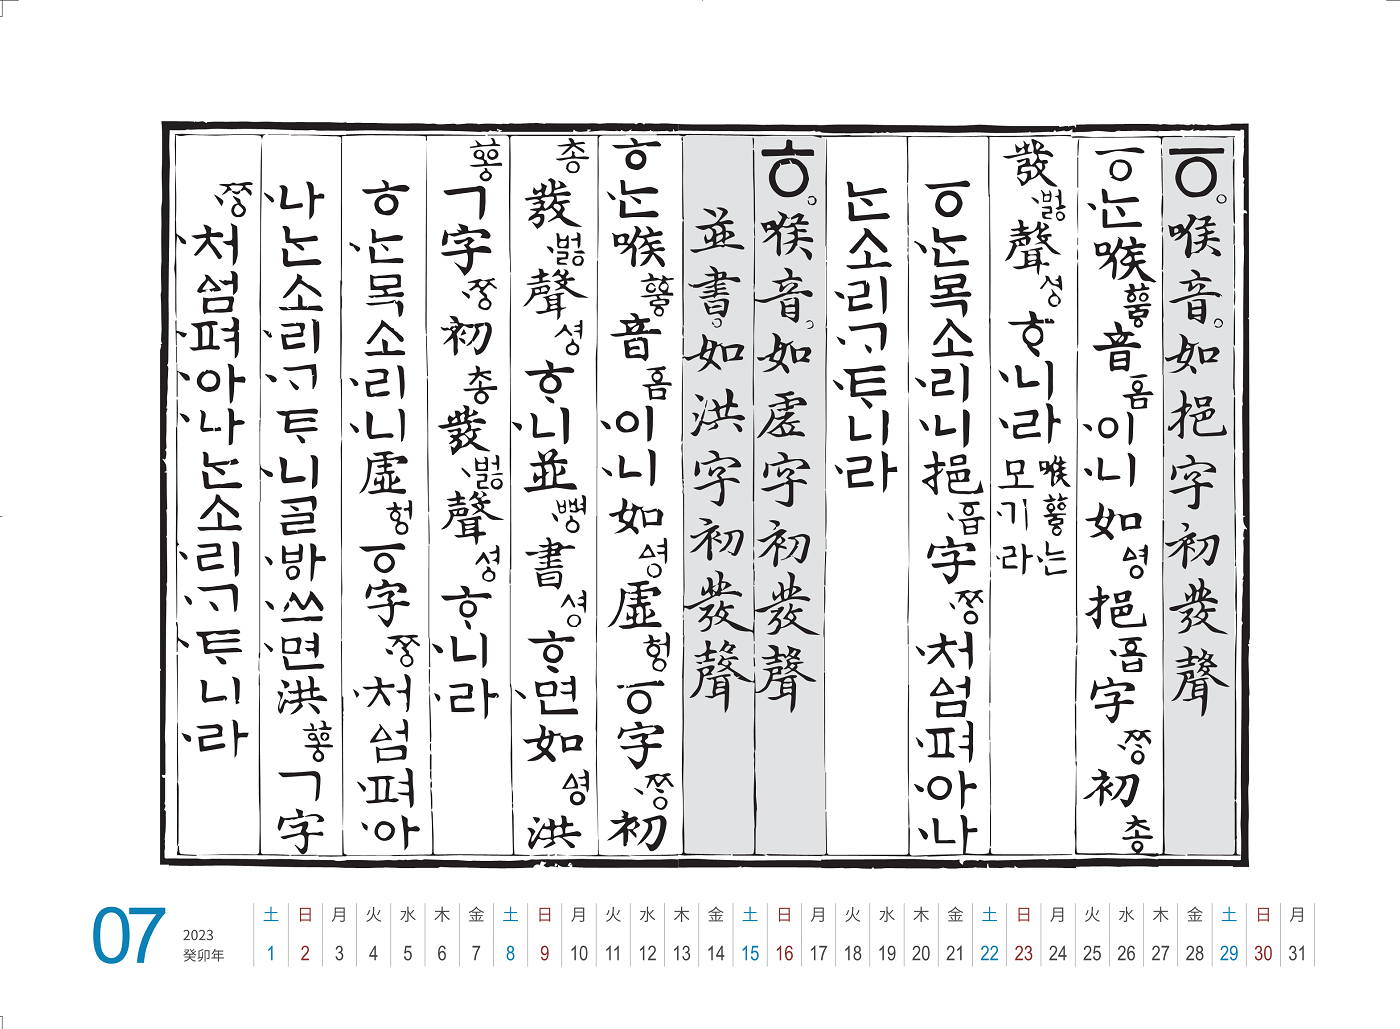 ㆆ。喉音。如挹字初發聲
ㆆ·ᄂᆞᆫ喉ᅘᅮᇢ音ᅙᅳᆷ·이·니如ᅀᅧᆼ挹ᅙᅳᆸ字·ᄍᆞᆼ初총
發·벓聲셩·ᄒᆞ·니·라
喉ᅘᅮᇢ·는
모·기·라
ㆆ·ᄂᆞᆫ목소·리·니挹ᅙᅳᆸ字·ᄍᆞᆼ·처ᅀᅥᆷ·펴·아·나
ᄂᆞᆫ소·리·ᄀᆞ·ᄐᆞ·니·라
ㅎ。喉音。如虛字初發聲
並書。如洪字初發聲
ㅎ·ᄂᆞᆫ喉ᅘᅮᇢ音ᅙᅳᆷ·이·니如ᅀᅧᆼ虛헝ㆆ字·ᄍᆞᆼ初
총發·벓聲셩·ᄒᆞ·니並·뼝書셩·ᄒᆞ·면如ᅀᅧᆼ洪
ᅘᅩᇰㄱ字·ᄍᆞᆼ初총發·벓聲셩·ᄒᆞ·니·라
ㅎ·ᄂᆞᆫ목소·리·니虛헝ㆆ字·ᄍᆞᆼ·처ᅀᅥᆷ·펴·아
·나ᄂᆞᆫ소·리·ᄀᆞ·ᄐᆞ·니ᄀᆞᆯ·ᄫᅡ·쓰·면洪ᅘᅩᇰㄱ字
·ᄍᆞᆼ·처ᅀᅥᆷ·펴·아·나ᄂᆞᆫ소·리·ᄀᆞ·ᄐᆞ·니·라
07
2023
癸卯年
土 日 月 火 水 木 金 土 日 月 火 水 木 金 土 日 月 火 水 木 金 土 日 月 火 水 木 金 土 日 月
1 2 3 4 5 6 7 8 9 10 11 12 13 14 15 16 17 18 19 20 21 22 23 24 25 26 27 28 29 30 31